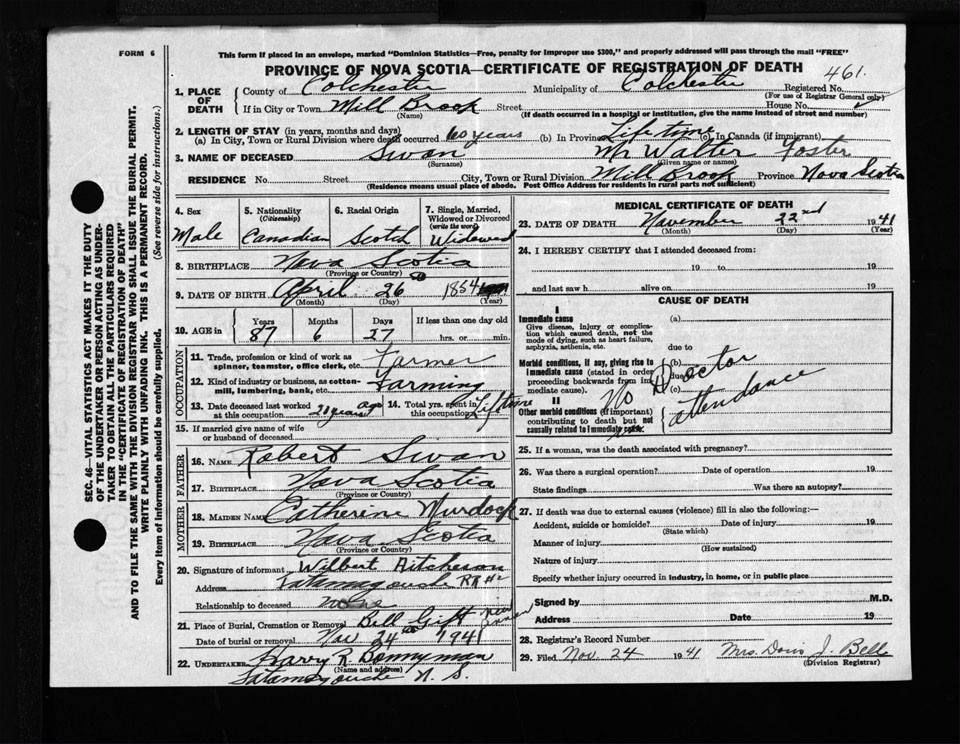 FORM 6
This form if placed in an envelope, marked "Dominion Statistics—Free, penalty for improper use $300," and properly addressed will pass through the mail "FREE"
PROVINCE OF NOVA SCOTIA—CERTIFICATE OF REGISTRATION OF DEATH
461.
1. PLACE OF DEATH County of Colchester Municipality of Colchester Registered No.
(For use of Registrar General only)
If in City or Town Mill Brook Street House No.
(Name) (If death occurred in a hospital or institution, give the name instead of street and number)
2. LENGTH OF STAY (in years, months and days)
(a) In City, Town or Rural Division where death occurred 60 years (b) In Province Life time (c) In Canada (if immigrant)
3. NAME OF DECEASED Swan Mr Walter Foster
(Surname) (Given name or names)
RESIDENCE No. Street City, Town or Rural Division Mill Brook Province Nova Scotia
(Residence means usual place of abode. Post Office Address for residents in rural parts not sufficient)
SEC. 46—VITAL STATISTICS ACT MAKES IT THE DUTY
OF THE UNDERTAKER OR PERSON ACTING AS UNDER-
TAKER TO OBTAIN ALL THE PARTICULARS REQUIRED
IN THE "CERTIFICATE OF REGISTRATION OF DEATH"
AND TO FILE THE SAME WITH THE DIVISION REGISTRAR WHO SHALL ISSUE THE BURIAL PERMIT.
WRITE PLAINLY WITH UNFADING INK. THIS IS A PERMANENT RECORD.
Every item of information should be carefully supplied. (See reverse side for instructions.)
4. Sex 5. Nationality (Citizenship) 6. Racial Origin 7. Single, Married, Widowed or Divorced (write the word)
Male Canadian Scotch Widowed
8. BIRTHPLACE Nova Scotia
(Province or Country)
9. DATE OF BIRTH April 26 1854
(Month) (Day) (Year)
10. AGE in Years Months Days If less than one day old
87 6 27 hrs. or min.
OCCUPATION
11. Trade, profession or kind of work as spinner, teamster, office clerk, etc. Farmer
12. Kind of industry or business, as cotton-mill, lumbering, bank, etc. Farming
13. Date deceased last worked at this occupation 20 years ago 14. Total yrs. spent in this occupation Lifetime
15. If married give name of wife or husband of deceased
FATHER
16. NAME Robert Swan
17. BIRTHPLACE Nova Scotia
(Province or Country)
MOTHER
18. MAIDEN NAME Catherine Murdock
19. BIRTHPLACE Nova Scotia
(Province or Country)
20. Signature of informant Wilbert Aitcheson
Address Tatamagouche RR #2
Relationship to deceased none
21. Place of Burial, Cremation or Removal Bell Gift
Date of burial or removal Nov 24th 1941
22. UNDERTAKER Harry R. Bonnyman
(Name and address)
Tatamagouche N. S.
MEDICAL CERTIFICATE OF DEATH
23. DATE OF DEATH November 22nd 1941
(Month) (Day) (Year)
24. I HEREBY CERTIFY that I attended deceased from:
19 to 19
and last saw h alive on 19
CAUSE OF DEATH
I
Immediate cause (a)
Give disease, injury or complication which caused death, not the mode of dying, such as heart failure, asphyxia, asthenia, etc.
due to
Morbid conditions, if any, giving rise to immediate cause (stated in order proceeding backwards from immediate cause). (b)
due to
(c)
II
Other morbid conditions (if important) contributing to death but not causally related to immediate cause.
No Doctor
attendance
25. If a woman, was the death associated with pregnancy?
26. Was there a surgical operation? Date of operation 19
State findings Was there an autopsy?
27. If death was due to external causes (violence) fill in also the following:—
Accident, suicide or homicide? Date of injury 19
(State which)
Manner of injury
(How sustained)
Nature of injury
Specify whether injury occurred in industry, in home, or in public place
Signed by M.D.
Address Date 19
28. Registrar's Record Number
29. Filed Nov. 24 1941 Mrs. Down J. Bell
(Division Registrar)